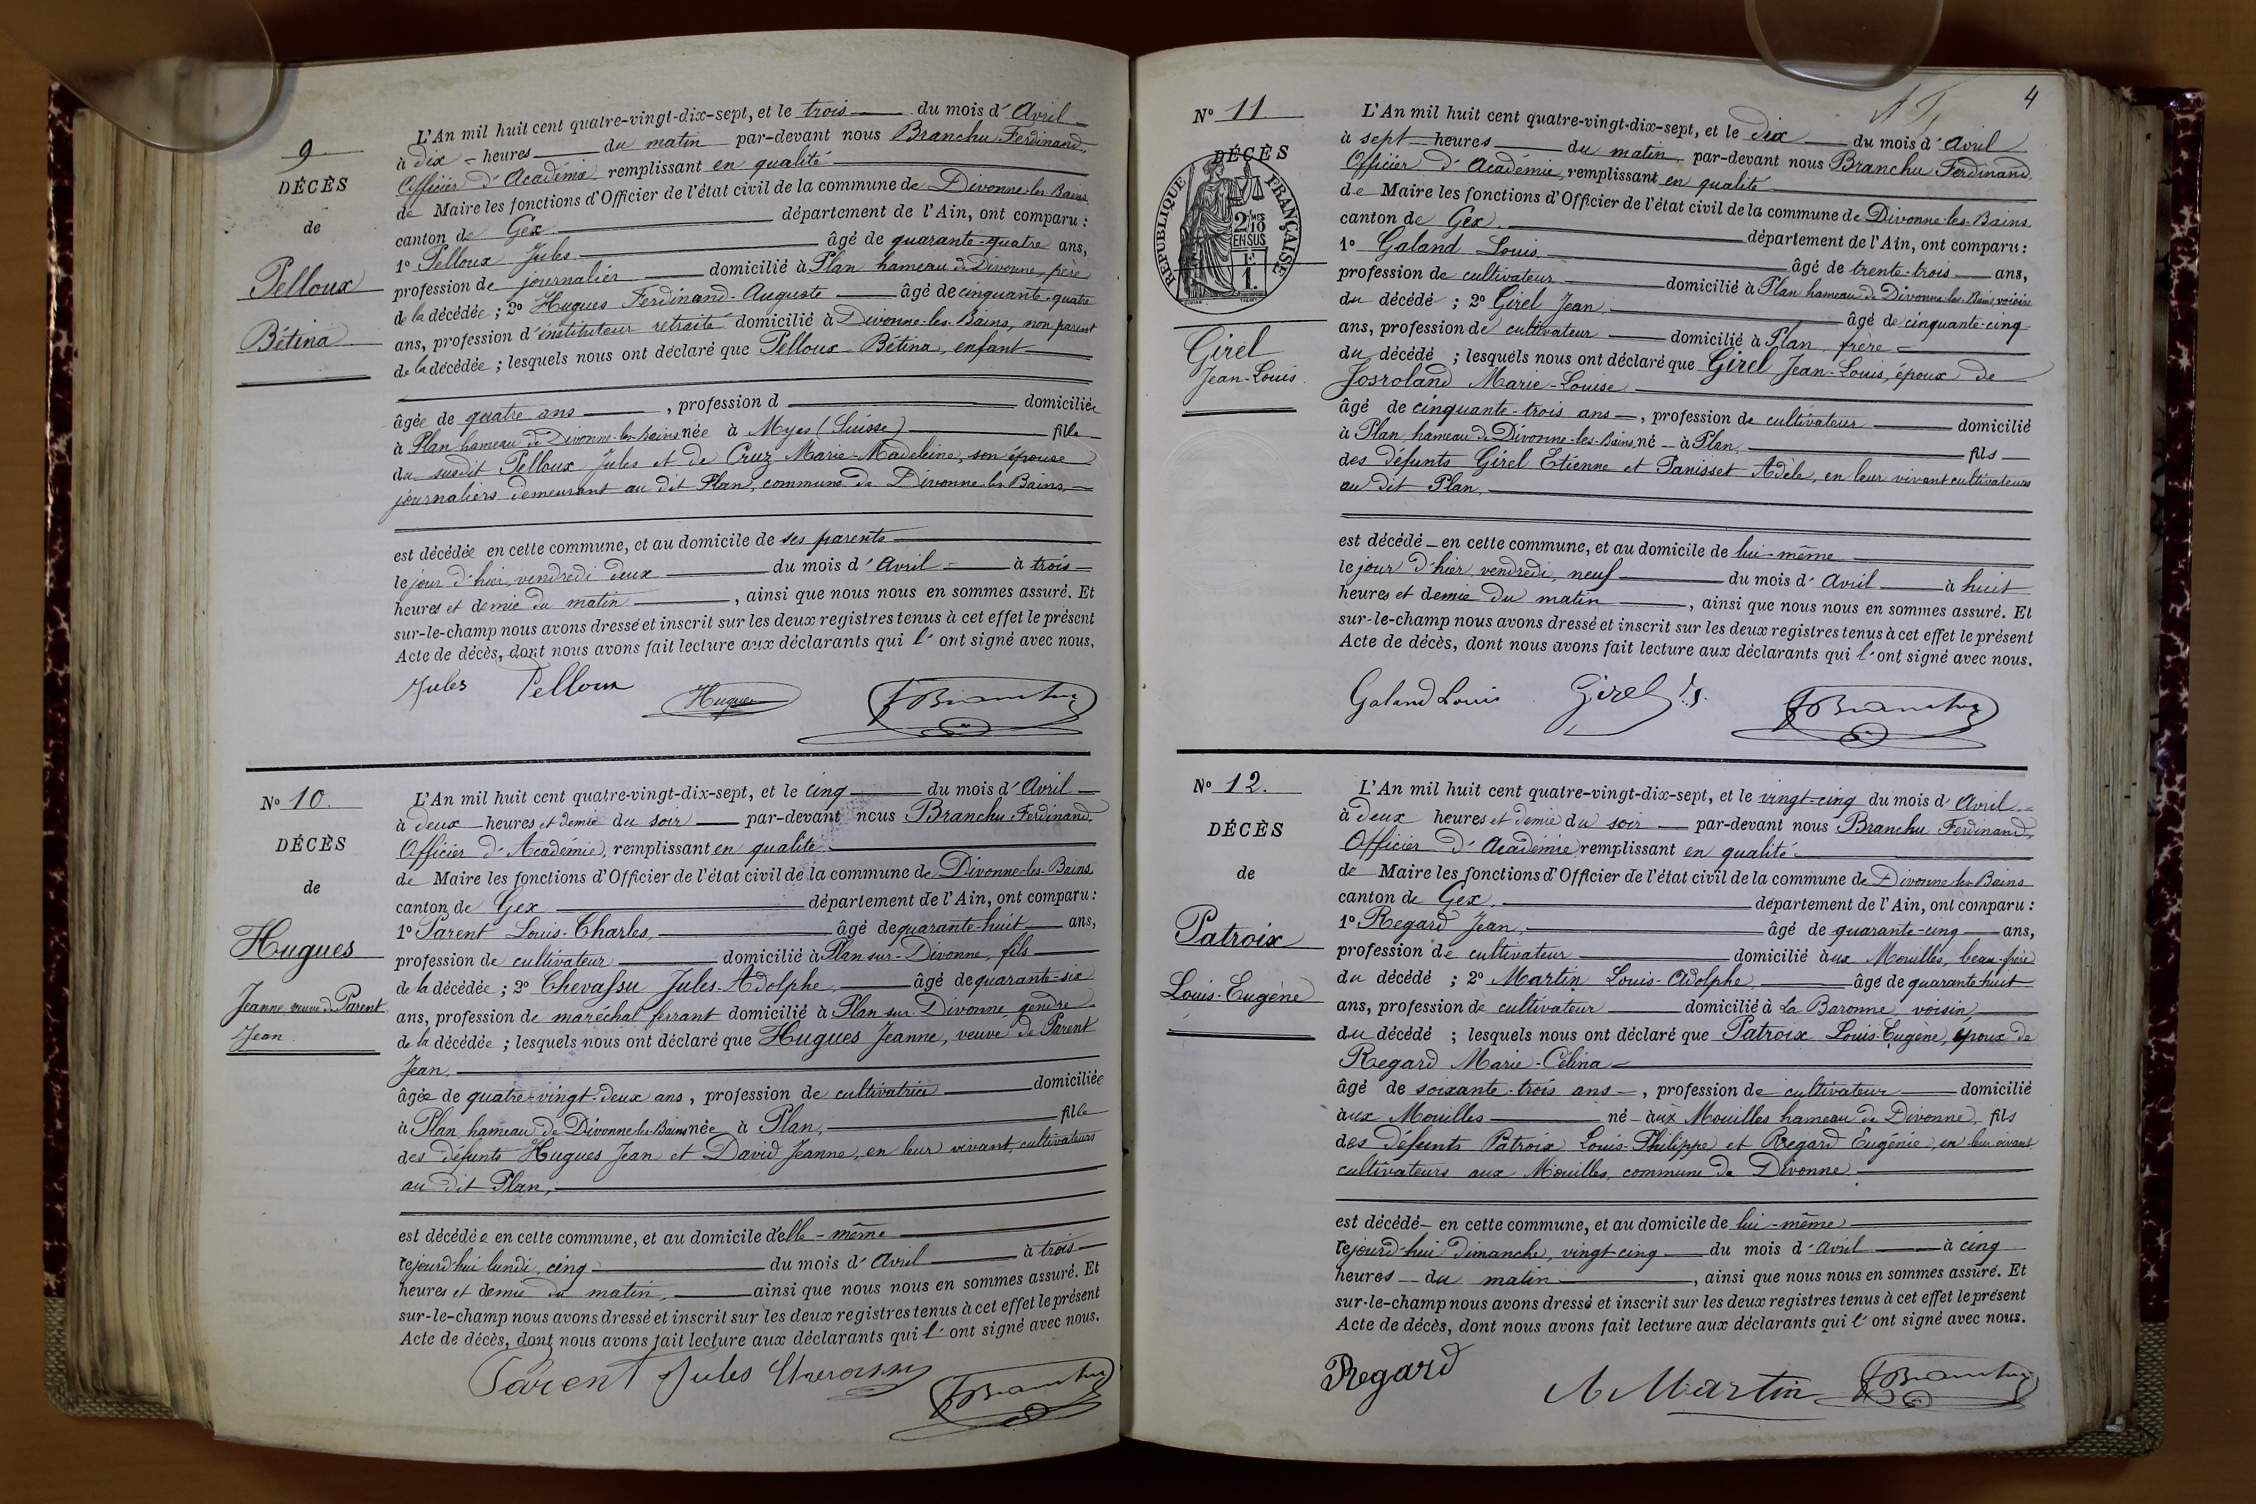 9
DÉCÈS
de
Pelloux
Bétina
L'An mil huit cent quatre-vingt-dix-sept, et le trois du mois d'Avril
à dix heures du matin par-devant nous Branchu Ferdinand,
Officier d'Académie remplissant en qualité
de Maire les fonctions d'Officier de l'état civil de la commune de Divonne-les-Bains
canton de Gex département de l'Ain, ont comparu :
1º Pelloux Jules âgé de quarante-quatre ans,
profession de journalier domicilié à Plan hameau de Divonne, père
de la décédée ; 2º Hugues Ferdinand-Auguste âgé de cinquante-quatre
ans, profession d'instituteur retraité domicilié à Divonne-les-Bains, non parent
de la décédée ; lesquels nous ont déclaré que Pelloux Bétina, enfant
âgée de quatre ans , profession d domiciliée
à Plan hameau de Divonne-les-Bains née à Myes (Suisse) fille
du susdit Pelloux Jules et de Cruz Marie-Madeleine, son épouse
journaliers demeurant au dit Plan, commune de Divonne-les-Bains
est décédée en cette commune, et au domicile de ses parents
le jour d'hier, vendredi deux du mois d'Avril à trois
heures et demie du matin , ainsi que nous nous en sommes assuré. Et
sur-le-champ nous avons dressé et inscrit sur les deux registres tenus à cet effet le présent
Acte de décès, dont nous avons fait lecture aux déclarants qui l'ont signé avec nous.
Jules Pelloux Hugues FBranchu
Nº 10.
DÉCÈS
de
Hugues
Jeanne veuve de Parent
Jean
L'An mil huit cent quatre-vingt-dix-sept, et le cinq du mois d'Avril
à deux heures et demie du soir par-devant nous Branchu Ferdinand,
Officier d'Académie, remplissant en qualité
de Maire les fonctions d'Officier de l'état civil de la commune de Divonne-les-Bains
canton de Gex département de l'Ain, ont comparu :
1º Parent Louis-Charles, âgé de quarante-huit ans,
profession de cultivateur domicilié à Plan-sur-Divonne, fils
de la décédée ; 2º Chevassu Jules-Adolphe. âgé de quarante-six
ans, profession de maréchal ferrant domicilié à Plan sur Divonne gendre
de la décédée ; lesquels nous ont déclaré que Hugues Jeanne, veuve de Parent
Jean.
âgée de quatre-vingt-deux ans, profession de cultivatrice domiciliée
à Plan, hameau de Divonne-les-Bains née à Plan, fille
des défunts Hugues Jean et David Jeanne, en leur vivant, cultivateurs
au dit Plan,
est décédée en cette commune, et au domicile d'elle-même
cejourd'hui lundi, cinq du mois d'Avril à trois
heures et demie du matin, ainsi que nous nous en sommes assuré. Et
sur-le-champ nous avons dressé et inscrit sur les deux registres tenus à cet effet le présent
Acte de décès, dont nous avons fait lecture aux déclarants qui l'ont signé avec nous.
Parent Jules Chevassu FBranchu
4
Nº 11
DÉCÈS
RÉPUBLIQUE FRANÇAISE
2/10
EN SUS
1.
Girel
Jean-Louis
L'An mil huit cent quatre-vingt-dix-sept, et le dix du mois d'Avril
à sept heures du matin, par-devant nous Branchu Ferdinand,
Officier d'Académie, remplissant en qualité
de Maire les fonctions d'Officier de l'état civil de la commune de Divonne-les-Bains
canton de Gex. département de l'Ain, ont comparu :
1º Galand Louis âgé de trente-trois ans,
profession de cultivateur domicilié à Plan hameau de Divonne-les-Bains, voisin
du décédé ; 2º Girel Jean, âgé de cinquante-cinq
ans, profession de cultivateur domicilié à Plan, frère
du décédé ; lesquels nous ont déclaré que Girel Jean-Louis, époux de
Josroland Marie-Louise
âgé de cinquante-trois ans , profession de cultivateur domicilié
à Plan, hameau de Divonne-les-Bains, né à Plan, fils
des défunts Girel Etienne et Panisset Adèle, en leur vivant cultivateurs
au dit Plan,
est décédé en cette commune, et au domicile de lui-même
le jour d'hier vendredi, neuf du mois d'Avril à huit
heures et demie du matin , ainsi que nous nous en sommes assuré. Et
sur-le-champ nous avons dressé et inscrit sur les deux registres tenus à cet effet le présent
Acte de décès, dont nous avons fait lecture aux déclarants qui l'ont signé avec nous.
Galand Louis Girel J. FBranchu
Nº 12.
DÉCÈS
de
Patroix
Louis-Eugène
L'An mil huit cent quatre-vingt-dix-sept, et le vingt-cinq du mois d'Avril
à deux heures et demie du soir par-devant nous Branchu Ferdinand,
Officier d'Académie remplissant en qualité
de Maire les fonctions d'Officier de l'état civil de la commune de Divonne-les-Bains
canton de Gex. département de l'Ain, ont comparu :
1º Regard Jean, âgé de quarante-cinq ans,
profession de cultivateur domicilié aux Mouilles, beau-frère
du décédé ; 2º Martin Louis-Adolphe âgé de quarante huit
ans, profession de cultivateur domicilié à La Baronne, voisin
du décédé ; lesquels nous ont déclaré que Patroix Louis-Eugène, époux de
Regard Marie-Célina
âgé de soixante-trois ans , profession de cultivateur domicilié
aux Mouilles né aux Mouilles hameau de Divonne, fils
des défunts Patroix Louis-Philippe et Regard Eugénie, en leur vivant
cultivateurs aux Mouilles, commune de Divonne
est décédé en cette commune, et au domicile de lui-même
cejourd'hui Dimanche, vingt cinq du mois d'Avril à cinq
heures du matin , ainsi que nous nous en sommes assuré. Et
sur-le-champ nous avons dressé et inscrit sur les deux registres tenus à cet effet le présent
Acte de décès, dont nous avons fait lecture aux déclarants qui l'ont signé avec nous.
Regard A Martin FBranchu